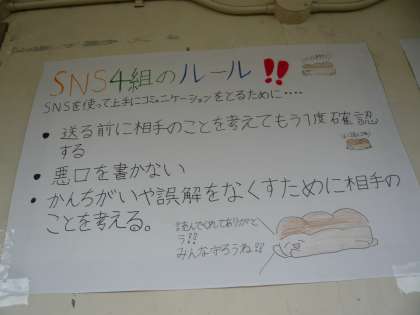 SNS4組のルール!!
SNSを使って上手にコミュニケーションをとるために‥‥
• 送る前に相手のことを考えてもう1度確認
する
• 悪口を書かない
• かんちがいや誤解をなくすために相手の
ことを考える。
読んでくれてありがと
う!!
みんな守ろうね!!